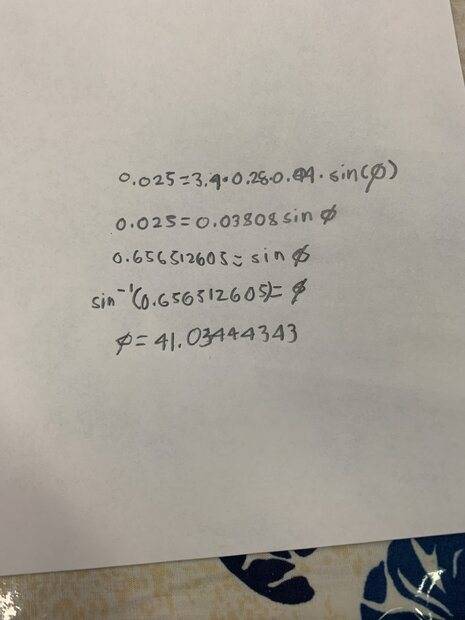 0.025=3.4·0.28·0.04·sin(φ)
0.025=0.03808sinφ
0.656512605=sinφ
sin⁻¹(0.656512605)=φ
φ=41.03444343